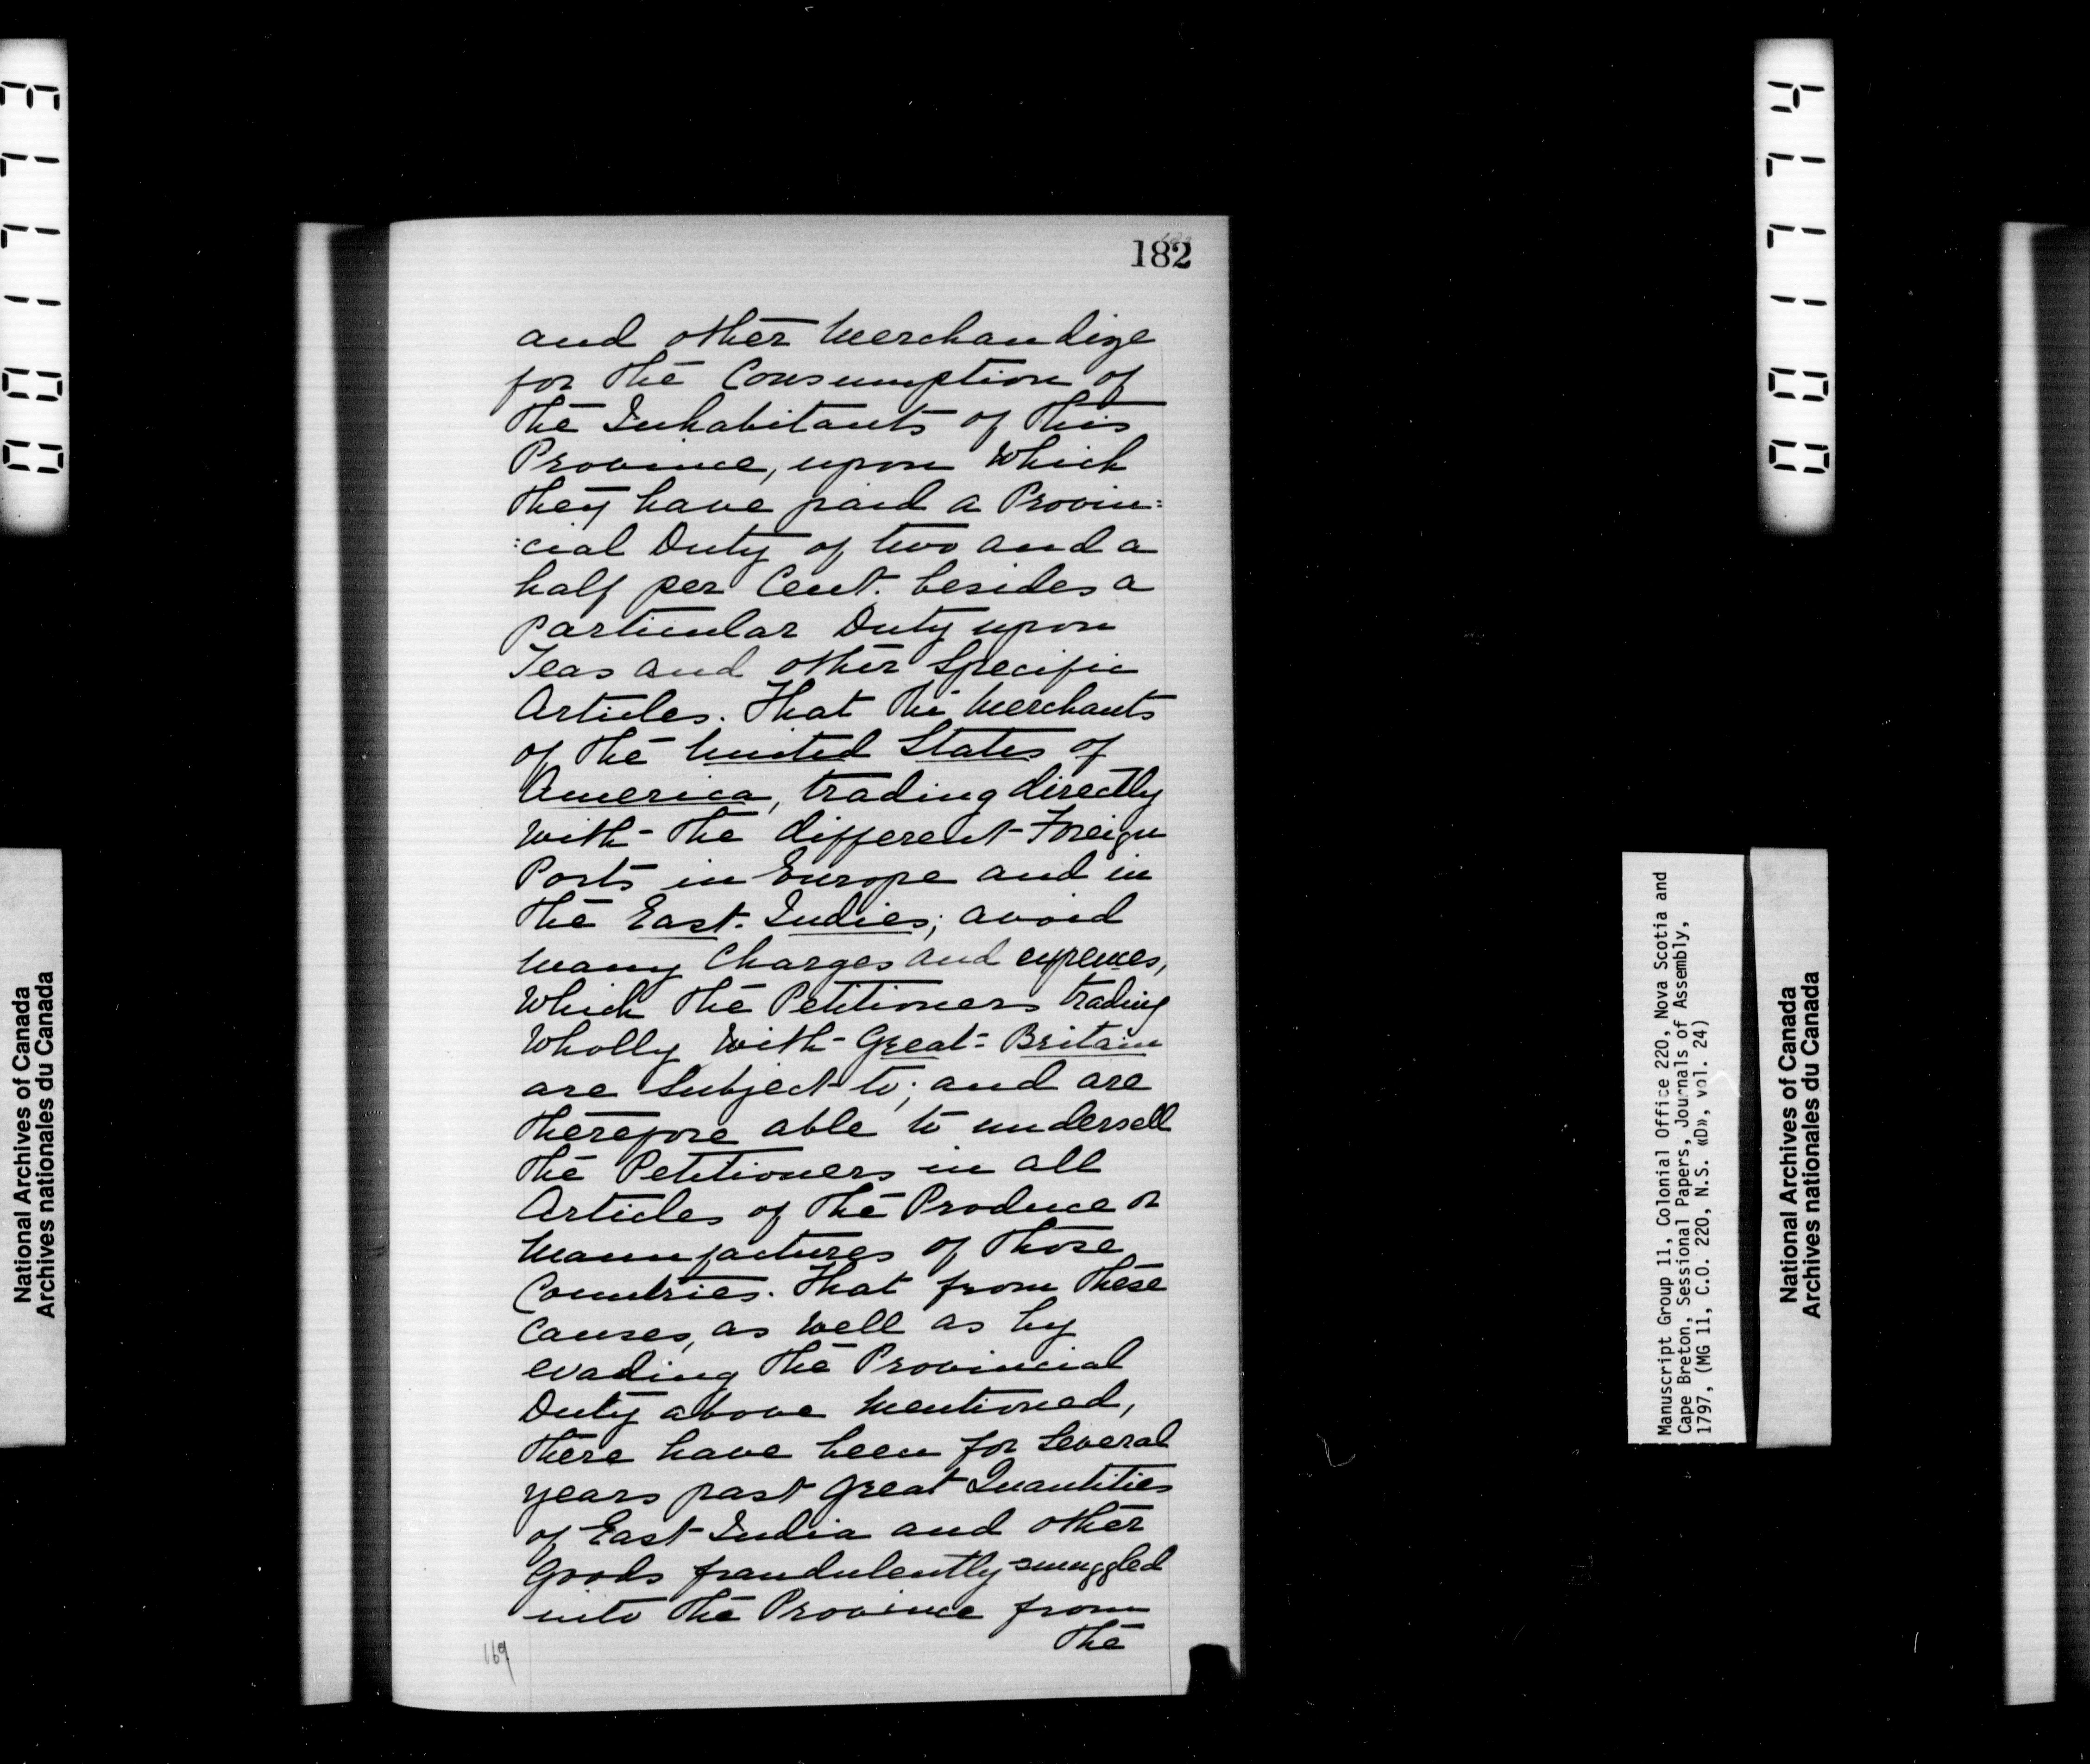 182
and other Merchandize
for the Consumption of
the Inhabitants of this
Province, upon Which
they have paid a Provin:
:cial Duty of two and a
half per Cent. besides a
particular Duty upon
Teas and other Specific
Articles. That the Merchants
of the United States of
America, trading directly
with the different Foreign
Ports in Europe and in
the East-Indies; avoid
many Charges and expences,
Which the Petitioners trading
Wholly With Great=Britain
are Subject to; and are
therefore able to undersell
the Petitioners in all
Articles of the Produce or
Manufactures of those
Countries. That from these
Causes, as Well as by
evading the Provincial
Duty above Mentioned,
there have been for Several
years past great Quantities
of East-India and other
Goods fraudulently smuggled
into the Province from
the
169
National Archives of Canada
Archives nationales du Canada
Manuscript Group 11, Colonial Office 220, Nova Scotia and
Cape Breton, Sessional Papers, Journals of Assembly,
1797, (MG 11, C.O. 220, N.S. «D», vol. 24)
National Archives of Canada
Archives nationales du Canada